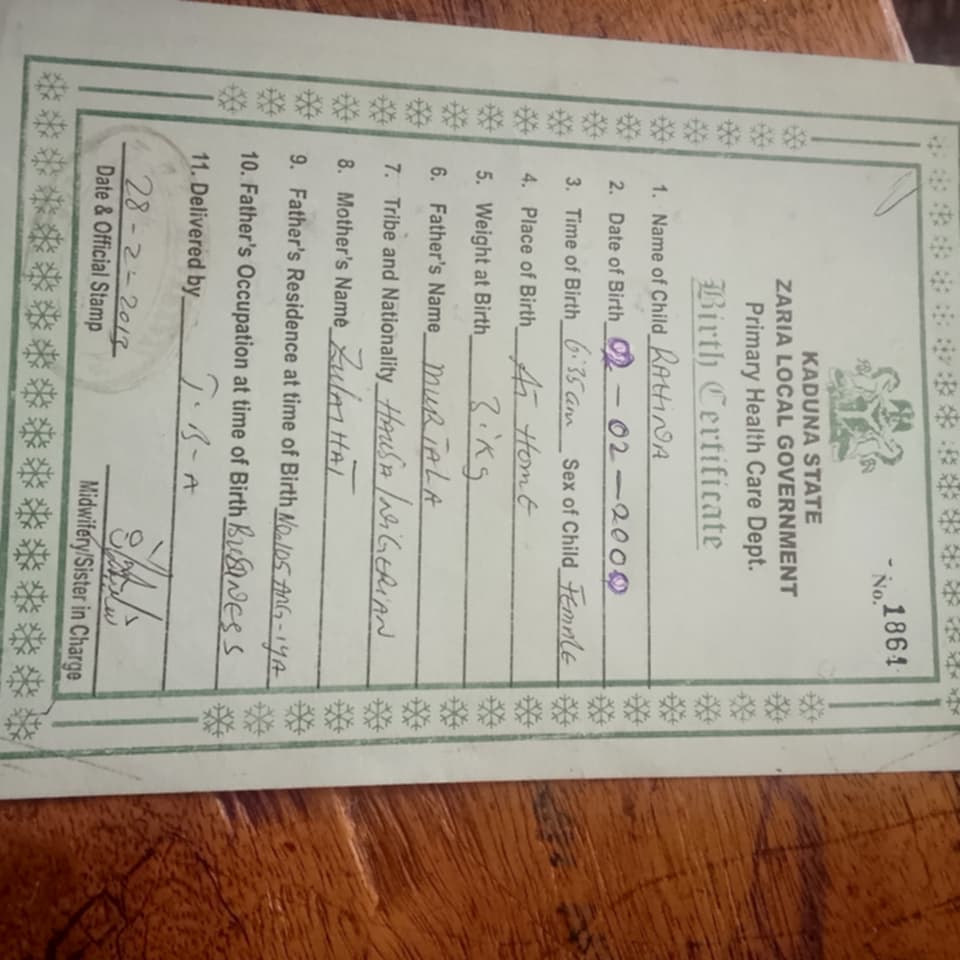 No. 1861
KADUNA STATE
ZARIA LOCAL GOVERNMENT
Primary Health Care Dept.
Birth Certificate
1. Name of Child RAHINA
2. Date of Birth - 02 - 200
3. Time of Birth 6:35am Sex of Child Female
4. Place of Birth At Home
5. Weight at Birth 3.1Kg
6. Father's Name MURTALA
7. Tribe and Nationality HAUSA/NIGERIAN
8. Mother's Name
9. Father's Residence at time of Birth
10. Father's Occupation at time of Birth BUSINESS
11. Delivered by T-B-A
28-2-2019
Date & Official Stamp
Midwifery/Sister in Charge